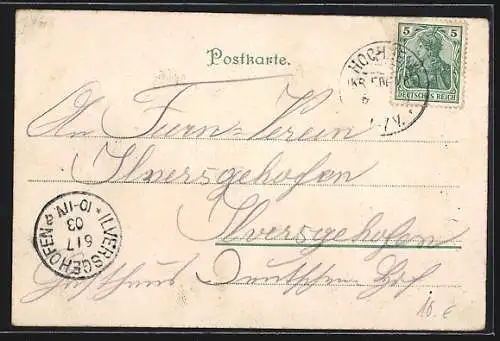 Postkarte.
5 5
DEUTSCHES REICH
HOCH
An Turn-Verein
Ilversgehofen
Ilversgehofen
Gasthaus Deutscher Hof
ILVERSGEHOFEN a
* 10-11V
6 17
03
10.€